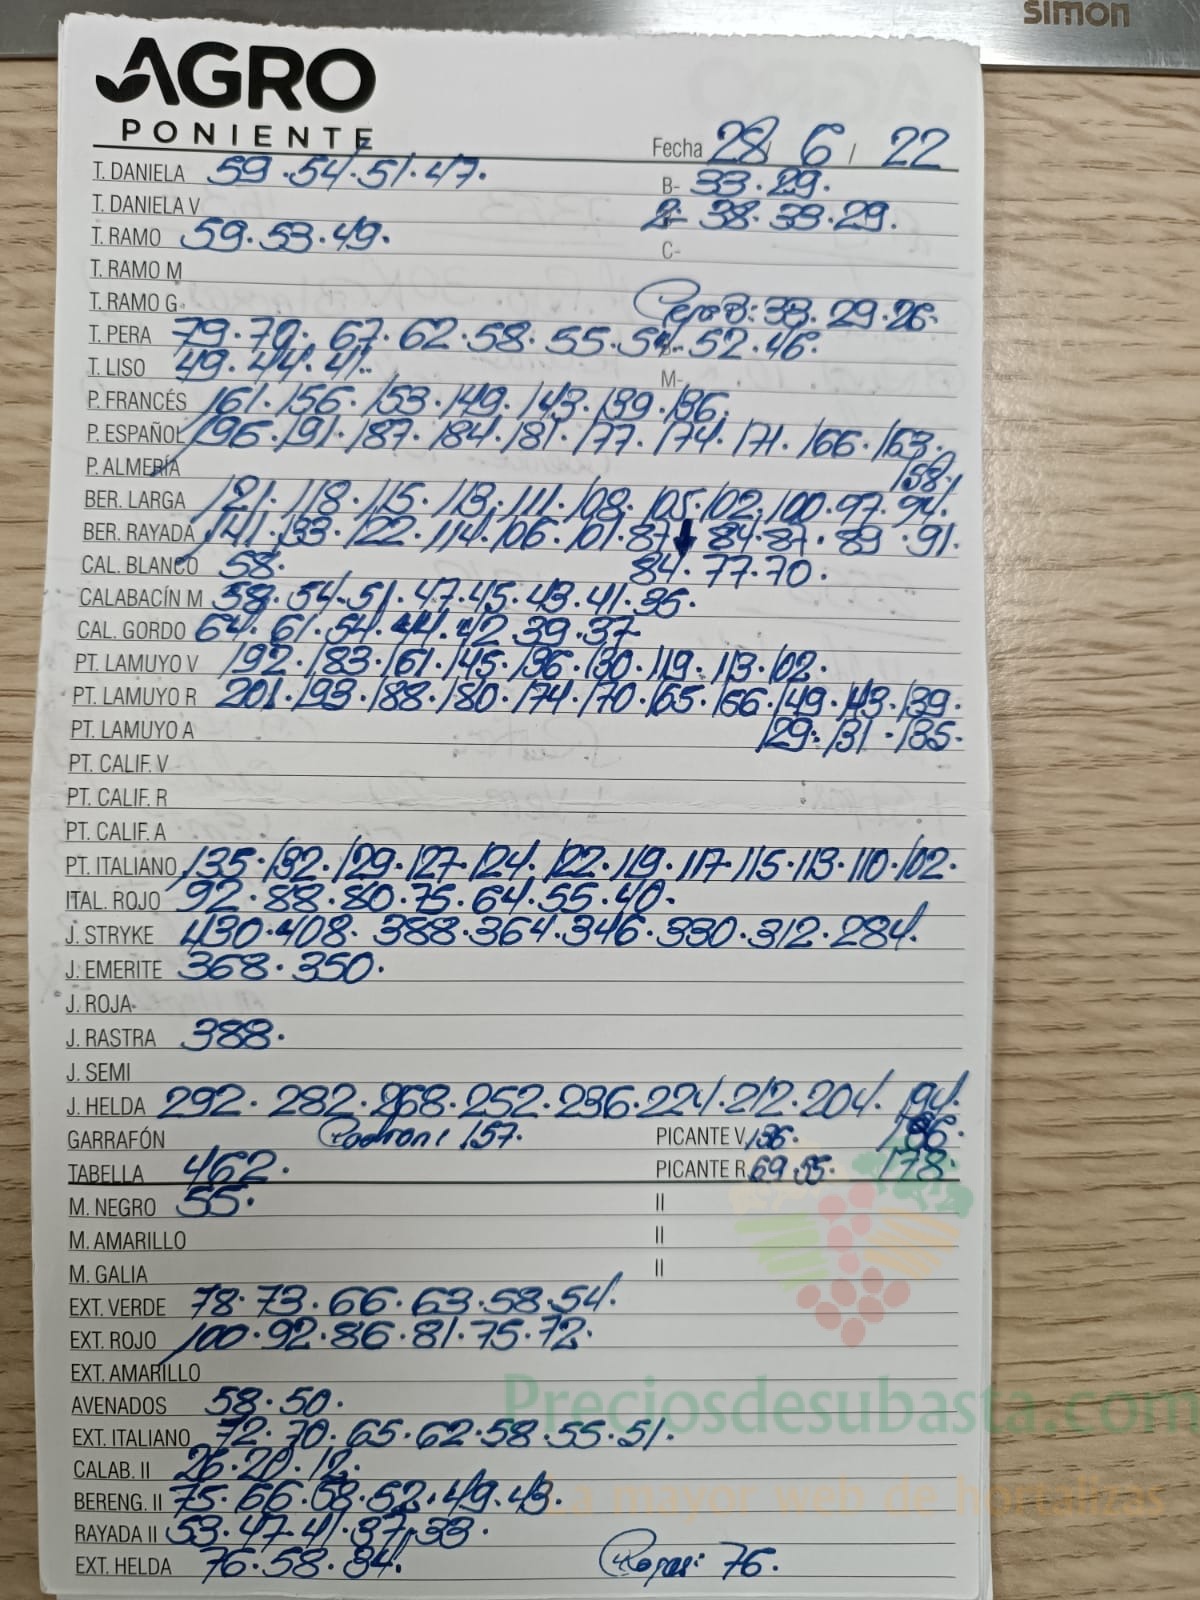 simon
AGRO
PONIENTE
Fecha 28 / 6 / 22
T. DANIELA 59.54.51.47.
B- 33.29.
T. DANIELA V
2- 38.33.29.
T. RAMO 59.53.49.
C-
T. RAMO M
T. RAMO G
Pera B: 33.29.26.
T. PERA 79.70.67.62.58.55.54.52.46.
T. LISO 49.44.41.
M-
P. FRANCÉS 161.156.153.149.143.139.136.
P. ESPAÑOL 196.191.187.184.181.177.174.171.166.163.
158.
P. ALMERÍA
BER. LARGA 121.118.115.113.111.108.105.102.100.97.94.
BER. RAYADA 141.133.122.114.106.101.87 84.87.89.91.
CAL. BLANCO 58.
84.77.70.
CALABACÍN M 58.54.51.47.45.43.41.36.
CAL. GORDO 64.61.54.44.42.39.37
PT. LAMUYO V 192.183.161.145.136.130.119.113.102.
PT. LAMUYO R 201.193.188.180.174.170.165.166.149.143.139.
PT. LAMUYO A
129.131.135.
PT. CALIF. V
PT. CALIF. R
PT. CALIF. A
PT. ITALIANO 135.132.129.127.124.122.119.117.115.113.110.102.
ITAL. ROJO 92.88.80.75.64.55.40.
J. STRYKE 430.408.388.364.346.330.312.284.
J. EMERITE 368.350.
J. ROJA
J. RASTRA 388.
J. SEMI
J. HELDA 292.282.268.252.236.224.212.204.194.
GARRAFÓN Padron: 157.
PICANTE V 136. 186.
TABELLA 462.
PICANTE R. 69.55. 178.
M. NEGRO 55. II
M. AMARILLO II
M. GALIA II
EXT. VERDE 78.73.66.63.58.54.
EXT. ROJO 100.92.86.81.75.72.
EXT. AMARILLO
Preciosdesubasta.com
AVENADOS 58.50.
EXT. ITALIANO 72.70.65.62.58.55.51.
CALAB. II 26.20.12.
La mayor web de hortalizas
BERENG. II 75.66.58.52.49.43.
RAYADA II 53.47.41.37.33.
EXT. HELDA 76.58.34. Rojas: 76.